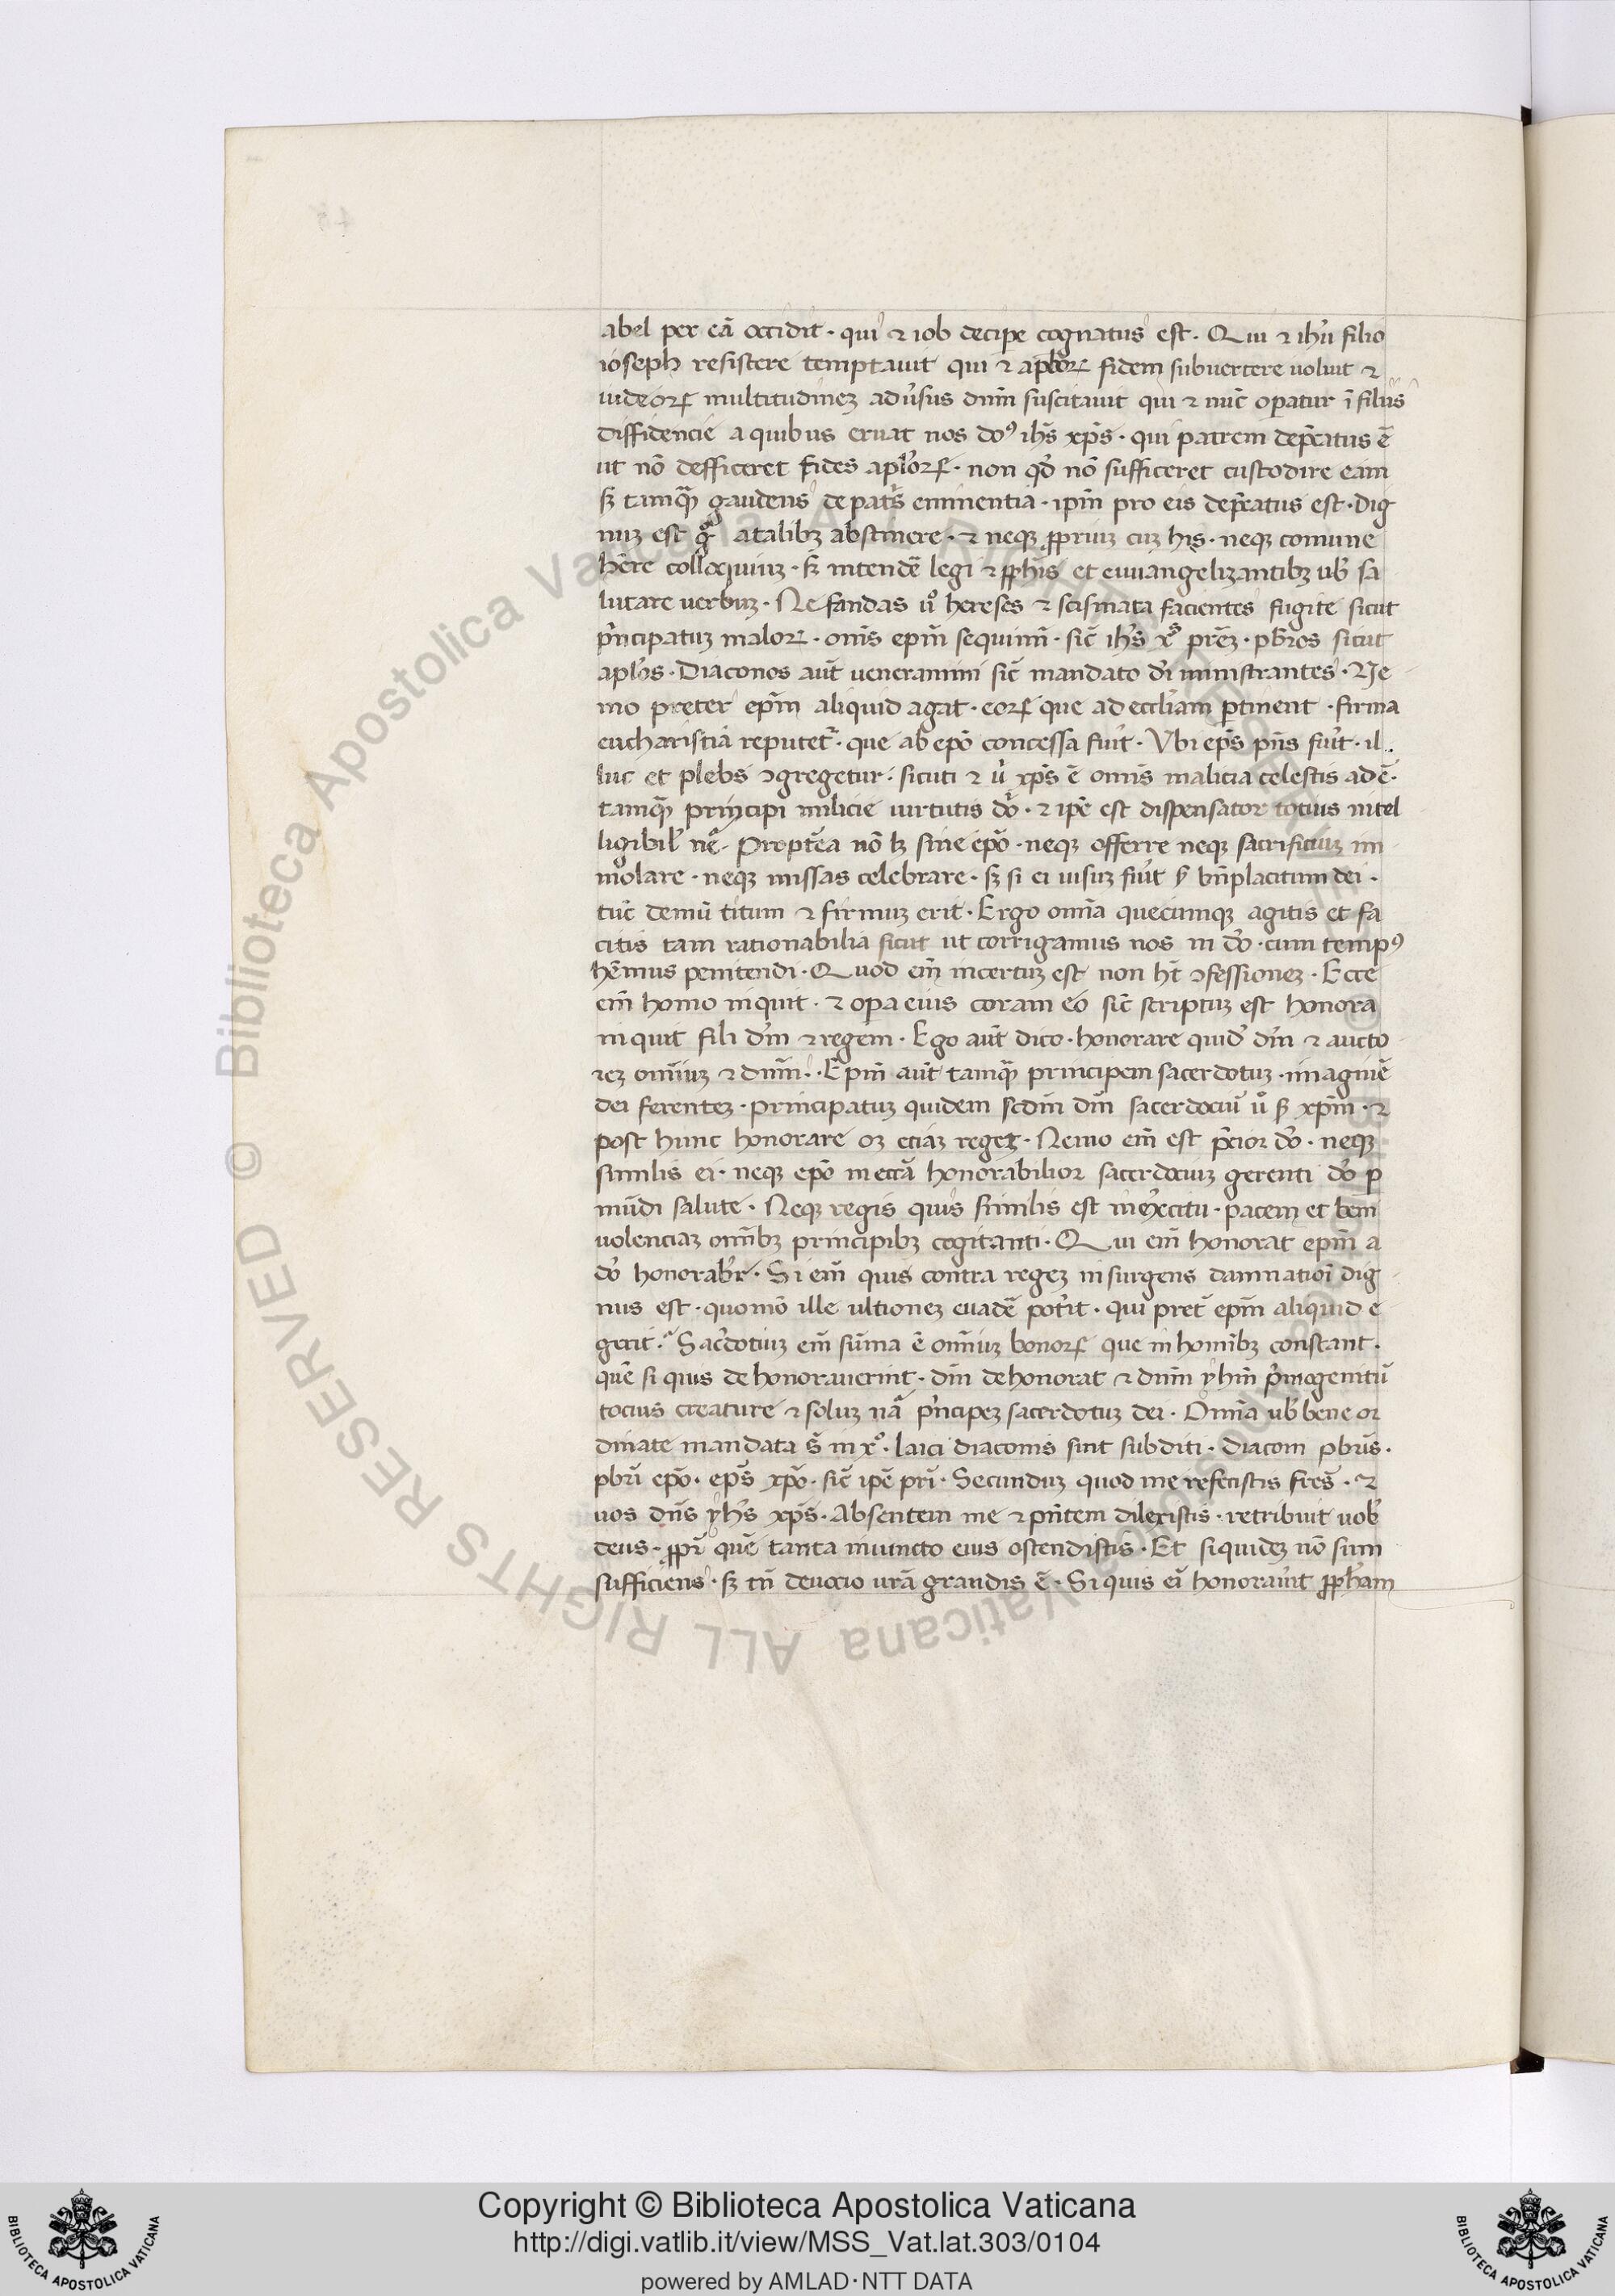 abel per eā occidit · qui & iob decipe cognatus est · Qui & ihū filio
ioseph resistere temptauit qui & aplōrꝝ fidem subuertere uoluit &
iudeorꝝ multitudineꝫ adūsus dn̄m suscitauit qui & nūc opatur ī filiis
diffidencie a quibus eruat nos doꝰ ihs̄ xps̄ · qui patrem dep̄catus ē
ut nō defficeret fides aplōrꝝ · non qd̄ nō sufficeret custodire eam
sꝫ tamqꝫ gaudens de patīs eminentia · ipm̄ pro eis dep̄catus est · dig
nuꝫ est gͦ atalibꝫ abstinere · & neqꝫ ꝓpriuꝫ cuꝫ his · neqꝫ comune
hēre colloquiuꝫ · sꝫ intendē legi & ꝓphīs et euuangelizantibꝫ uob̄ sa
lutare uerbuꝫ · Nefandas uͦ hereses & scismata facientes fugite sicut
pͥncipatuꝫ malorꝝ · om̄s epm̄ sequimī · sic̄ ihs̄ xͦs prēꝫ · pbr̄os sicut
aplōs · Diaconos aut̄ ueneramini sic̄ mandato dī ministrantes · Ne
mo preter epm̄ aliquid agat · eorꝝ que ad eccliam ꝑtinent · firma
eucharistia reputet᷑ · que ab epō concessa fūit · Vbi eps̄ pn̄s fūit · il
luc et plebs ꝯgregetur · sicuti & uͥ xps̄ ē om̄s malicia celestis adē ·
tamqꝫ principi milicie uirtutis dō · & ipē est dispensator totius intel
ligibil̄ nē · Propt̄ea nō lꝫ sine epō · neqꝫ offerre neqꝫ sacrificiuꝫ im
molare · neqꝫ missas celebrare · sꝫ si ei uisuꝫ fūit bn̄placitum dei ·
tūc demū titum & firmuꝫ erit · Ergo om̄ia quecumqꝫ agitis et fa
citis tam rationabilia sicut ut corrigamus nos in dō · cum tempꝰ
hēmus penitendi · Quod em̄ incertuꝫ est non ht̄ ꝯfessioneꝫ · Ecce
em̄ homo inquit · & opa eius coram eo sic̄ scriptuꝫ est honora
inquit fili dm̄ & regem · Ego aut̄ dico · honorare quid̄ dm̄ & aucto
reꝫ om̄iuꝫ & dn̄m · Epm̄ aut̄ tamqꝫ principem sacerdotuꝫ · imaginē
dei ferenteꝫ · principatuꝫ quidem scdm̄ dm̄ sacerdociū uͦ sꝫ xpm̄ · &
post hunc honorare oꝫ eciaꝫ regeꝫ · Nemo em̄ est pͥcior dō · neqꝫ
similis ei · neqꝫ epō in eccā honorabilior sacerdociuꝫ gerenti dō ꝓ
mūdi salute · Neqꝫ regis quis similis est in ex̄citu · pacem et bene
uolenciaꝫ om̄ibꝫ principibꝫ cogitanti · Qui em̄ honorat epm̄ a
dō honorabr̄ · Si em̄ quis contra regeꝫ insurgens damnatioī dig
nus est · quomō ille ultioneꝫ euadē pot̄it · qui pret̄ epm̄ aliquid e
gerit · Sac̄dotiuꝫ em̄ sūma ē om̄iuꝫ bonorꝝ que in homībꝫ constant ·
quē si quis dehonorauerint · dm̄ dehonorat & dn̄m yhm̄ pͥmogenitū
tocius creature & soluꝫ nā pͥncipeꝫ sacerdotuꝫ dei · Om̄ia ub̄ bene or
dinate mandata s̄ in xͦ · laici diaconis sint subditi · diaconi pbrīs ·
pbrī epō · eps̄ xpō · sic̄ ipē prī · Secunduꝫ quod me refecistis frēs · &
uos dn̄s yhs̄ xps̄ · Absentem me & pn̄tem dilexistis · retribuit uob̄
deus · ꝓpt̄ quē tanta in uincto eius ostendistis · Et siquideꝫ nō sum
sufficiens · sꝫ tn̄ deuocio ur̄a grandis ē · Si quis eī honorauīt ꝓpham
Copyright © Biblioteca Apostolica Vaticana
http://digi.vatlib.it/view/MSS_Vat.lat.303/0104
powered by AMLAD·NTT DATA